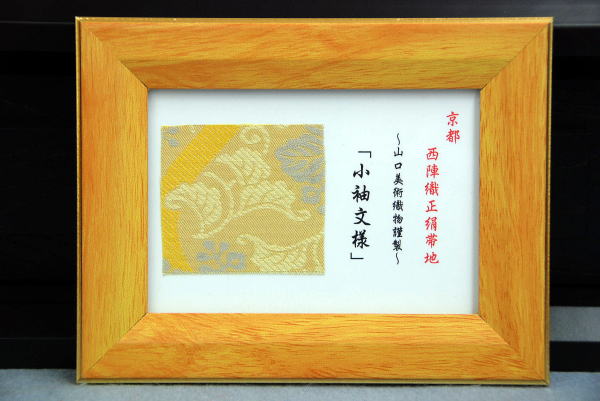 京都
西陣織正絹帯地
～山口美術織物謹製～
「小袖文様」